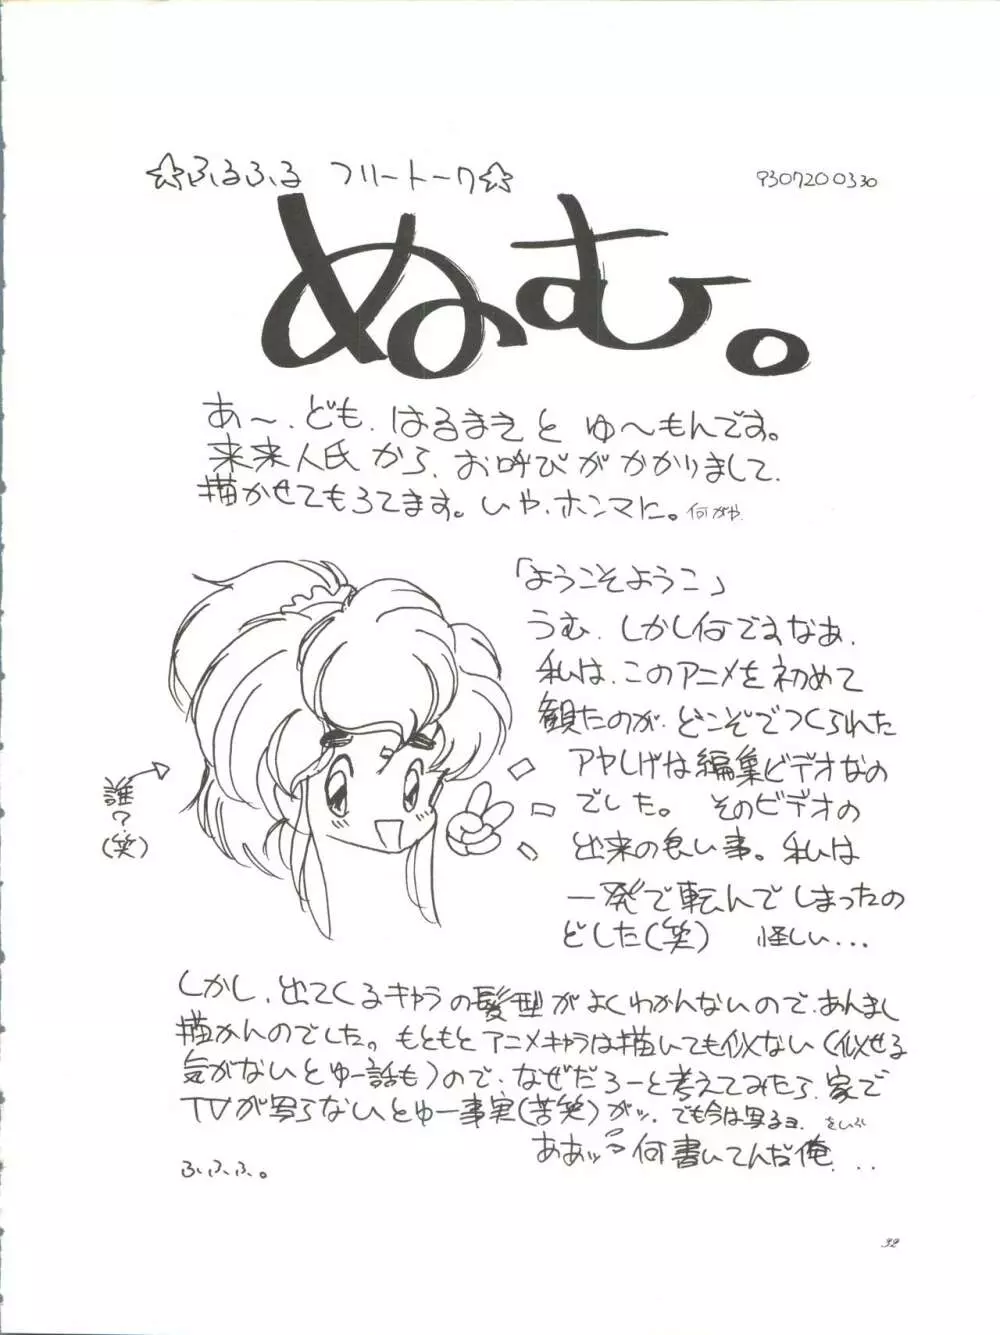 ☆ふるふる フリートーク☆
930720 0330
ぬむ。
あ～、ども、はるまきと ゆ～もんです。
来来人氏から、お呼びがかかりまして、
描かせてもろてます。いや、ホンマに。何がや
「ようこそようこ」
うむ、しかし何ですなあ、
私は、このアニメを初めて
観たのが、どこぞでつくられた
アヤしげな編集ビデオなの
でした。 そのビデオの
出来の良い事。私は
一発で転んでしまったの
どした(笑) 怪しい...
誰?
(笑)
しかし、出てくるキャラの髪型がよくわかんないので、あんまし
描かんのでした。もともとアニメキャラは描いても似ない(似せる
気がないとゆー話も)ので、なぜだろーと考えてみたら、家で
TVが写らないとゆー事実(苦笑)がッ。でも今は写るョ。
ああッ 何書いてんだ俺...
ふ、ふ、ふ。
32